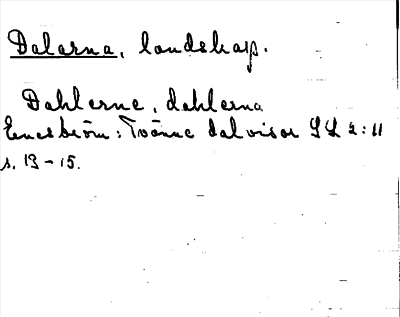 Dalarna, landskap.
Dahlerne, dahlerna
Eneström: Tvänne dalvisor SL 2:11
s. 13-15.